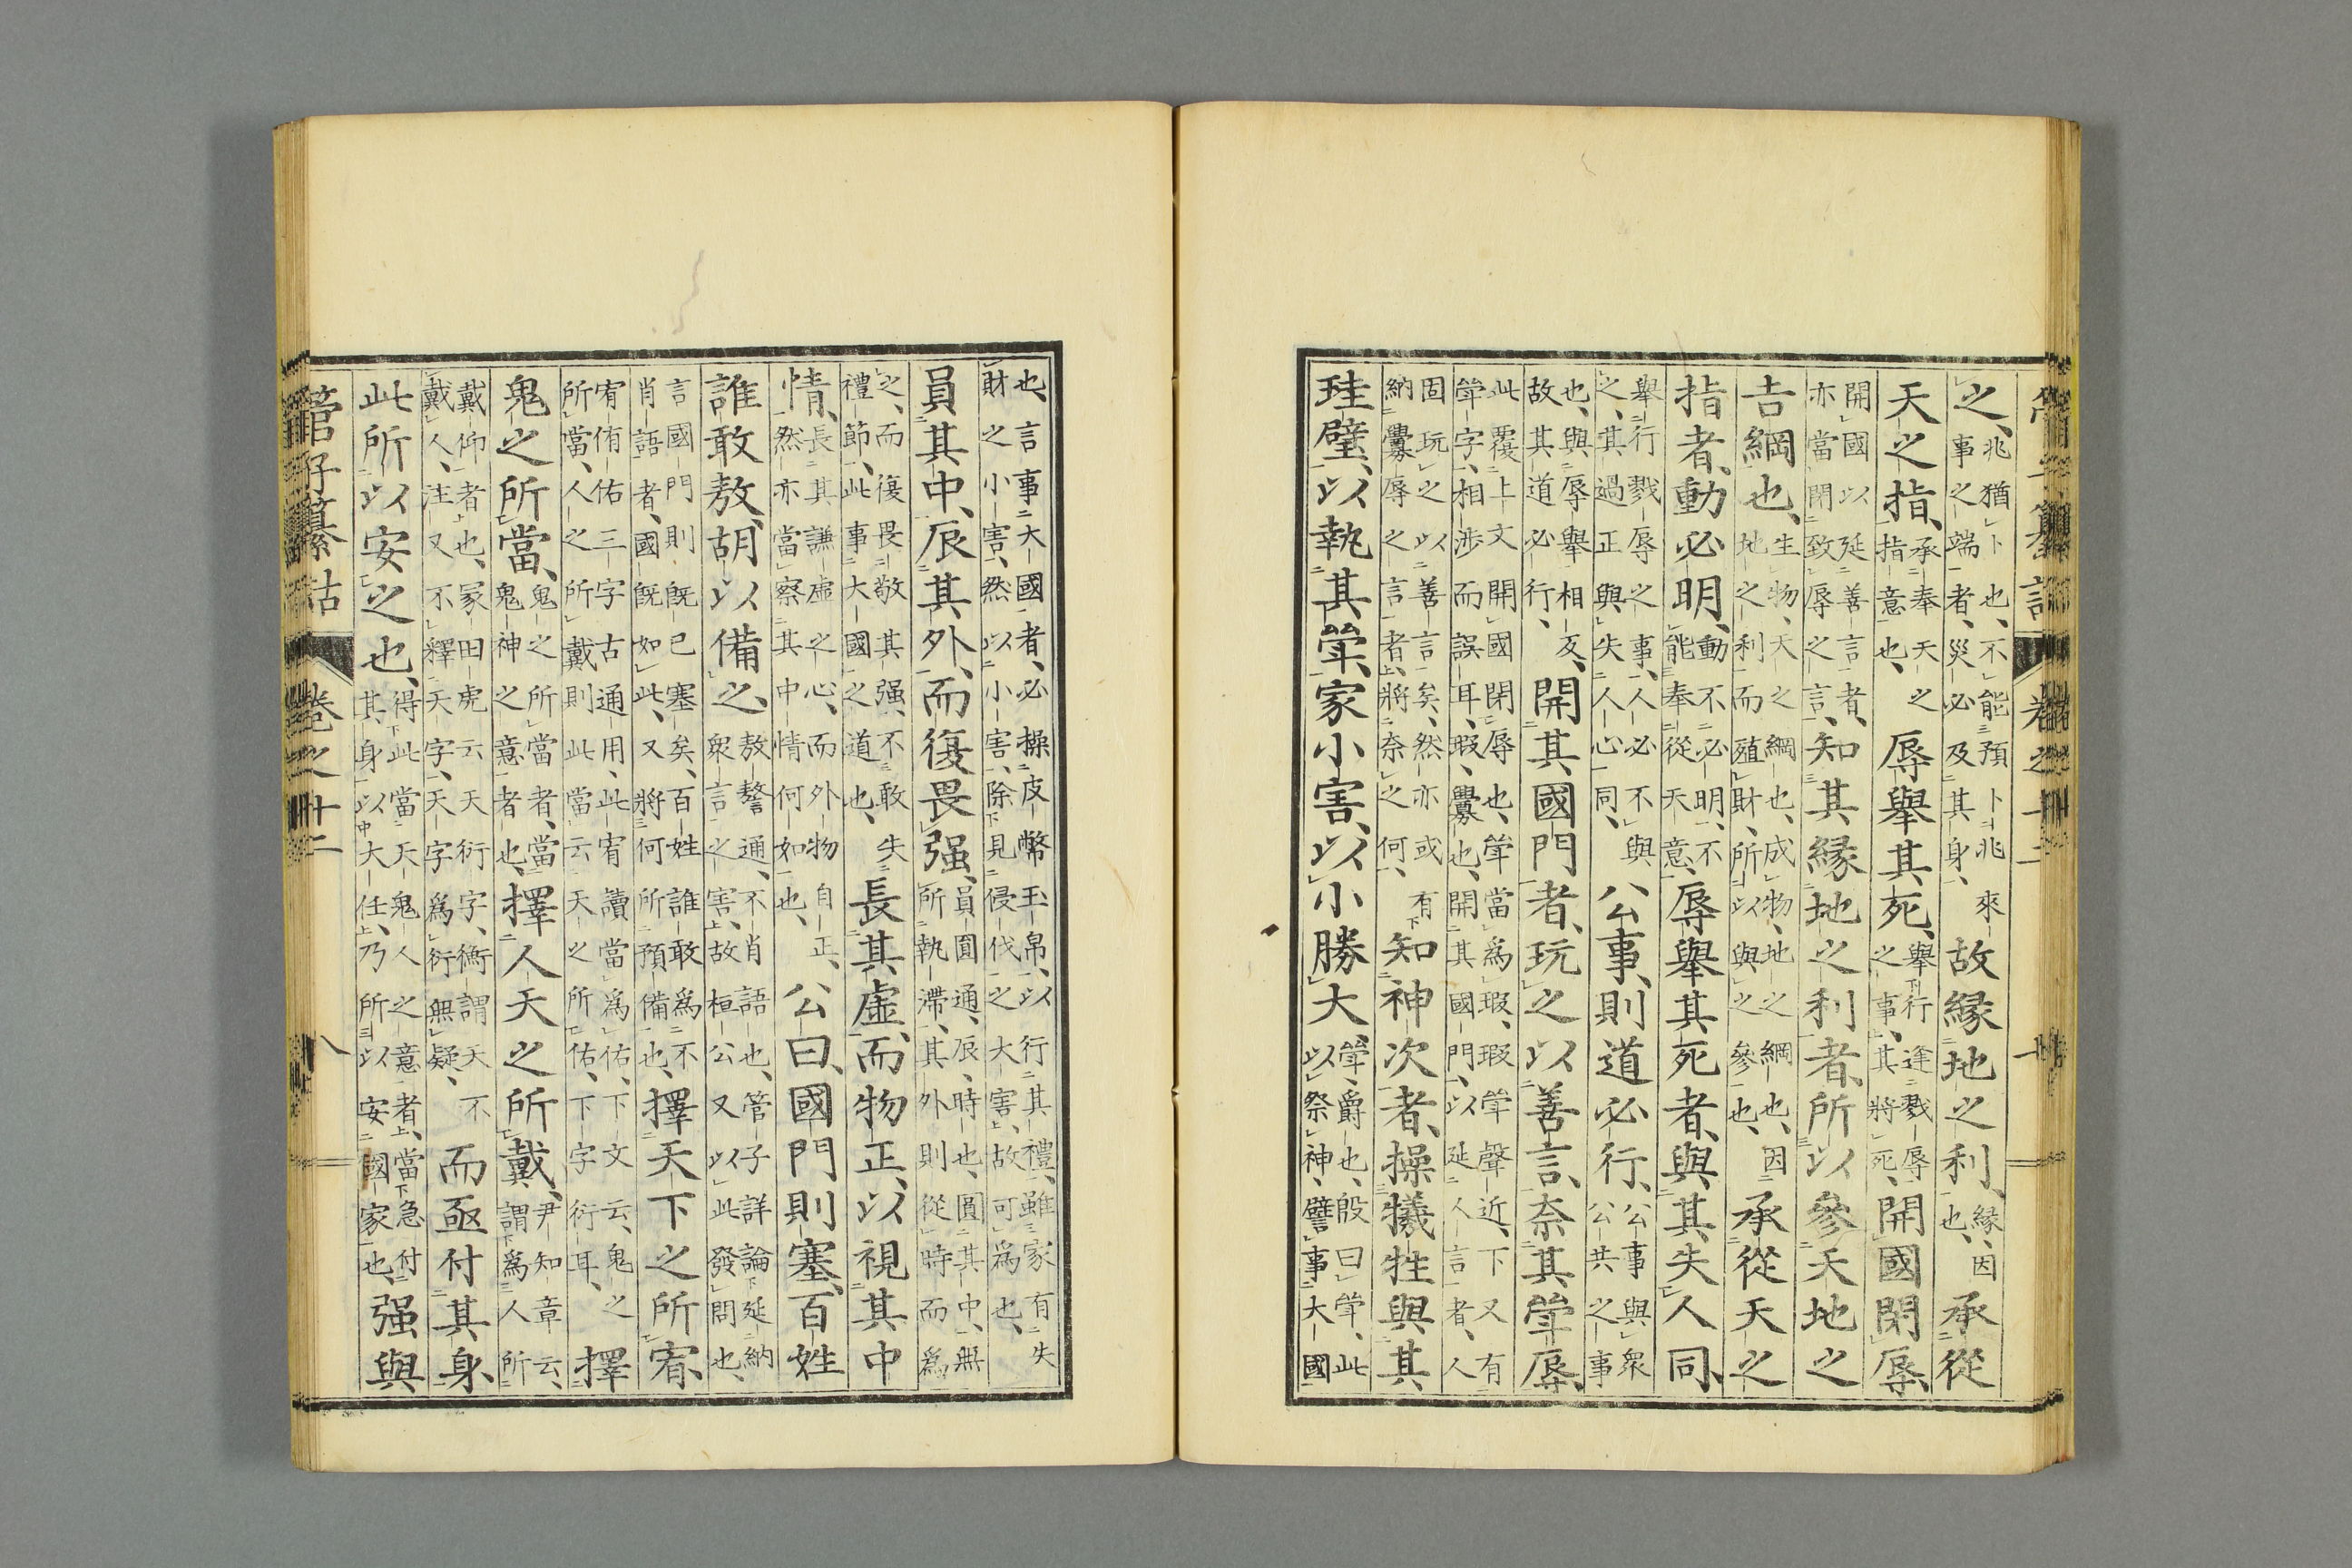 管子纂詁 卷之十二
之、兆猶卜也、不能預卜兆來事之端者、災必及其身、故緣地之利、緣、因也、承從
天之指、承奉天之指意也、辱舉其死、舉行逢戮辱之事、其將死、開國閉辱、
開國以延善言者、亦當閉致辱之言、知其緣地之利者、所以參天地之
吉綱也、生物、天之綱也、成物、地之綱也、因地之利而殖財、所以與之參也、承從天之
指者、動必明、動不必明、不能奉從天意、辱舉其死者、與其失人同、
舉行戮辱之事、人必不與之、其過正與失人心同、公事、則道必行、公事與衆公共之事
也、與辱舉相反、故其道必行、開其國門者、玩之以善言、奈其斝辱、
此覆上文開國閉辱也、斝當爲瑕、瑕斝聲近、下又有斝字、相涉而誤耳、瑕、釁也、開其國門、以延人言者、人
固玩之以善言矣、然亦或有納釁辱之言者、將奈之何、知神次者、操犧牲與其
珪璧、以執其斝、家小害、以小勝大、斝、爵也、殷曰斝、此以祭神、譬事大國
也、言事大國者、必操皮幣玉帛、以行其禮、雖家有失財之小害、然以小害、除見侵伐之大害、故可爲也、
員其中、辰其外、而復畏强、員圓通、辰、時也、圓其中、無所執滯、其外則從時而爲
之、而復畏敬其强、不敢失禮節、此事大國之道也、長其虛、而物正、以視其中
情、長其謙虛之心、而外物自正、然亦當察其中情何如也、公曰、國門則塞、百姓
誰敢敖、胡以備之、敖謷通、不肖語也、管子詳論延納衆言之害、故桓公又以此發問也、
言國門則既已塞矣、百姓誰敢爲不肖語者、國既如此、又將何所預備也、擇天下之所宥、
宥侑佑三字古通用、此宥讀當爲佑、下文云、鬼之所當、人之所戴、則此當云天之所佑、下字衍耳、擇
鬼之所當、鬼之所當者、當鬼神之意者也、擇人天之所戴、尹知章云、謂爲人所
戴仰者也、冢田虎云、天衍字、衡謂天不戴人、注又不釋天字、天字爲衍無疑、而亟付其身、
此所以安之也、得此當天鬼人之意者、當急付其身以大任、乃所以安國家也、强與
管子纂詁 卷之十二 八